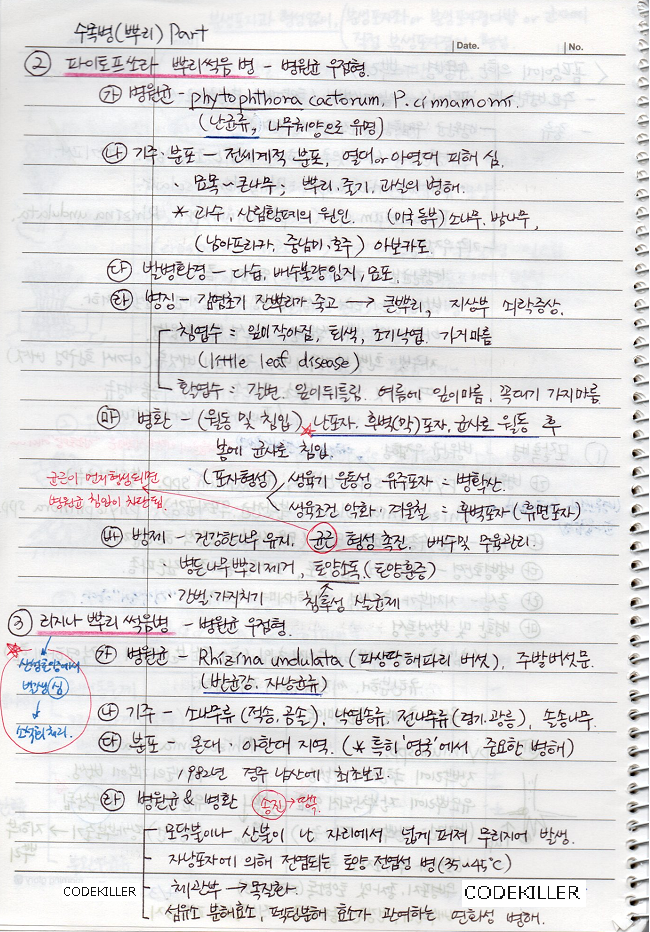 수목병(뿌리) Part
Date. No.
② 파이토프쏘라 뿌리썩음병 - 병원균 우점형.
㉮ 병원균 - phytophthora cactorum, P. cinnamomi.
(난균류, 나무궤양으로 유명)
㉯ 기주·분포 - 전세계적 분포, 열대or아열대 피해 심.
· 묘목~큰나무 : 뿌리·줄기, 과실의 병해.
* 과수, 산림황폐의 원인. (미국 동부) 소나무, 밤나무,
(남아프리카, 중남미·호주) 아보카도
㉰ 발병환경 - 다습, 배수불량임지, 묘포.
㉱ 병징 - 감염초기 잔뿌리가 죽고 → 큰뿌리, 지상부 쇠락증상.
침엽수 : 잎이작아짐, 퇴색, 조기낙엽, 가지마름
(little leaf disease)
활엽수 : 갈변. 잎이뒤틀림. 여름에 잎이마름, 꼭대기 가지마름
㉲ 병환 - (월동 및 침입) * 난포자, 후벽(막)포자, 균사로 월동 후
봄에 균사로 침입.
균근이 먼저형성되면
병원균 침입이 차단됨.
(포자형성) 생육기 운동성 유주포자 = 병확산.
생육조건 악화·겨울철 : 후벽포자 (휴면포자)
㉳ 방제 - 건강한나무 유지. 균근 형성 촉진. 배수및 수육관리.
· 병든나무뿌리제거, 토양소독.(토양훈증)
· 간벌·가지치기 침투성 살균제
③ 리지나 뿌리 썩음병 - 병원균 우점형.
* 산성토양에서
발생(심)
↓
소석회처리.
㉮ 병원균 - Rhizina undulata (파상땅해파리버섯), 주발버섯목.
(반균강, 자낭균류)
㉯ 기주 - 소나무류 (적송, 곰솔), 낙엽송류, 전나무류(경기.광릉), 솔송나무.
㉰ 분포 - 온대·아한대 지역. (* 특히 '영국'에서 중요한 병해)
1982년 경주 남산에 최초보고.
㉱ 병원균 & 병환 송진→땡쓱
모닥불이나 산불이 난 자리에서 넓게 퍼져 무리지어 발생.
자낭포자에 의해 전염되는 토양 전염성 병 (35~45℃)
체관부 → 목질화.
섬유소 분해효소, 펙틴분해 효소가 관여하는 연화성 병해.
CODEKILLER CODEKILLER